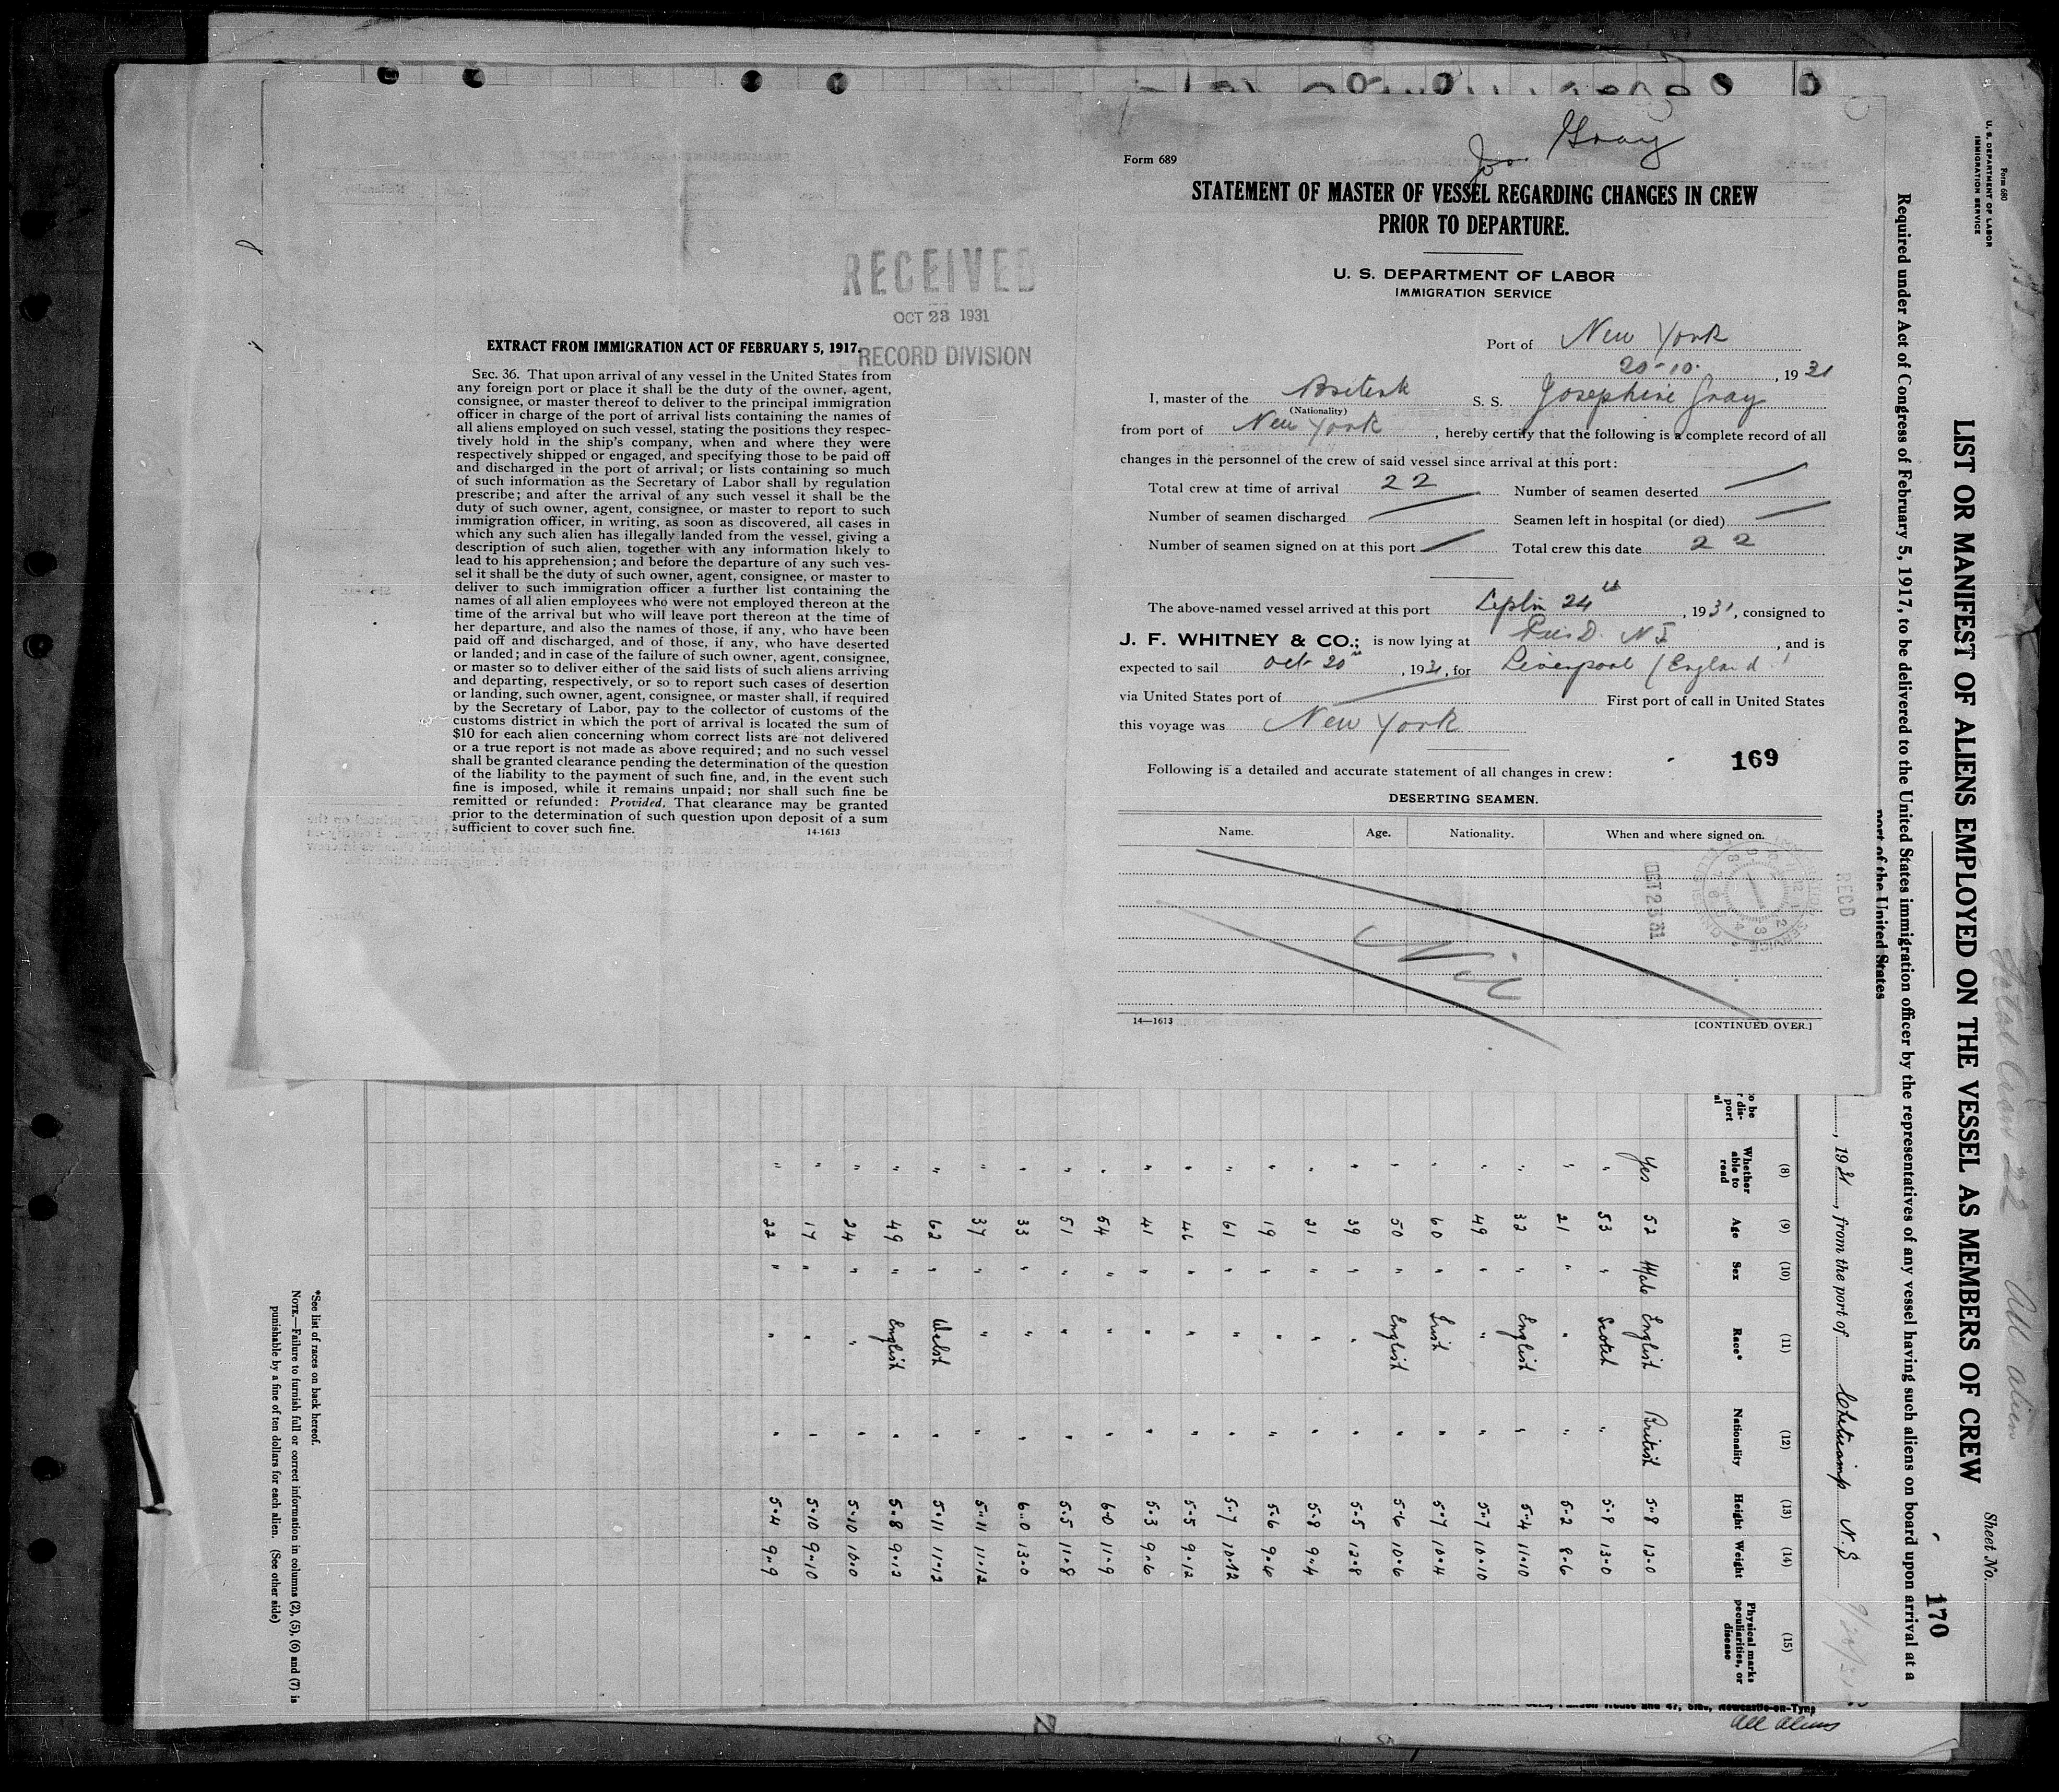 Jos. Gray
Form 689
STATEMENT OF MASTER OF VESSEL REGARDING CHANGES IN CREW
PRIOR TO DEPARTURE.
U. S. DEPARTMENT OF LABOR
IMMIGRATION SERVICE
Port of New York
20-10. , 1931
I, master of the British S. S. Josephine Gray
(Nationality)
from port of New York , hereby certify that the following is a complete record of all
changes in the personnel of the crew of said vessel since arrival at this port:
Total crew at time of arrival 22 Number of seamen deserted
Number of seamen discharged Seamen left in hospital (or died)
Number of seamen signed on at this port Total crew this date 22
The above-named vessel arrived at this port 24th , 1931, consigned to
J. F. WHITNEY & CO.; is now lying at , and is
expected to sail Oct 20th , 1931, for Liverpool / England
via United States port of First port of call in United States
this voyage was New York
169
Following is a detailed and accurate statement of all changes in crew:
DESERTING SEAMEN.
Name. Age. Nationality. When and where signed on.
Nil
RECD
14—1613 [CONTINUED OVER.]
RECEIVED
OCT 23 1931
RECORD DIVISION
EXTRACT FROM IMMIGRATION ACT OF FEBRUARY 5, 1917.
SEC. 36. That upon arrival of any vessel in the United States from
any foreign port or place it shall be the duty of the owner, agent,
consignee, or master thereof to deliver to the principal immigration
officer in charge of the port of arrival lists containing the names of
all aliens employed on such vessel, stating the positions they respec-
tively hold in the ship's company, when and where they were
respectively shipped or engaged, and specifying those to be paid off
and discharged in the port of arrival; or lists containing so much
of such information as the Secretary of Labor shall by regulation
prescribe; and after the arrival of any such vessel it shall be the
duty of such owner, agent, consignee, or master to report to such
immigration officer, in writing, as soon as discovered, all cases in
which any such alien has illegally landed from the vessel, giving a
description of such alien, together with any information likely to
lead to his apprehension; and before the departure of any such ves-
sel it shall be the duty of such owner, agent, consignee, or master to
deliver to such immigration officer a further list containing the
names of all alien employees who were not employed thereon at the
time of the arrival but who will leave port thereon at the time of
her departure, and also the names of those, if any, who have been
paid off and discharged, and of those, if any, who have deserted
or landed; and in case of the failure of such owner, agent, consignee,
or master so to deliver either of the said lists of such aliens arriving
and departing, respectively, or so to report such cases of desertion
or landing, such owner, agent, consignee, or master shall, if required
by the Secretary of Labor, pay to the collector of customs of the
customs district in which the port of arrival is located the sum of
$10 for each alien concerning whom correct lists are not delivered
or a true report is not made as above required; and no such vessel
shall be granted clearance pending the determination of the question
of the liability to the payment of such fine, and, in the event such
fine is imposed, while it remains unpaid; nor shall such fine be
remitted or refunded: Provided, That clearance may be granted
prior to the determination of such question upon deposit of a sum
sufficient to cover such fine. 14-1613
Form 680
U. S. DEPARTMENT OF LABOR
IMMIGRATION SERVICE
Total Crew 22 All alien
Sheet No.
LIST OR MANIFEST OF ALIENS EMPLOYED ON THE VESSEL AS MEMBERS OF CREW
170
Required under Act of Congress of February 5, 1917, to be delivered to the United States immigration officer by the representatives of any vessel having such aliens on board upon arrival at a
port of the United States
, 1931, from the port of Cheticamp N.S
(8) (9) (10) (11) (12) (13) (14) (15)
Whether able to read Age Sex Race* Nationality Height Weight Physical marks, peculiarities, or disease
Yes 52 Male English British 5-8 12-0
" 53 " Scotch " 5-8 13-0
" 21 " " " 5-2 8-6
" 32 " English " 5-4 11-10
" 49 " " " 5-7 10-10
" 60 " Irish " 5-7 10-4
" 50 " English " 5-6 10-6
" 39 " " " 5-5 12-8
" 21 " " " 5-8 9-4
" 19 " " " 5-6 9-6
" 61 " " " 5-7 10-12
" 46 " " " 5-5 9-12
" 41 " " " 5-3 9-6
" 54 " " " 6-0 11-9
" 51 " " " 5-5 11-8
" 33 " " " 6-0 13-0
" 37 " " " 5-11 11-12
" 62 " Welsh " 5-11 11-12
" 49 " English " 5-8 9-12
" 24 " " " 5-10 10-0
" 17 " " " 5-10 9-10
" 22 " " " 5-4 9-9
*See list of races on back hereof.
NOTE.—Failure to furnish full or correct information in columns (2), (5), (6) and (7) is
punishable by a fine of ten dollars for each alien. (See other side)
Newcastle-on-Tyne
All aliens